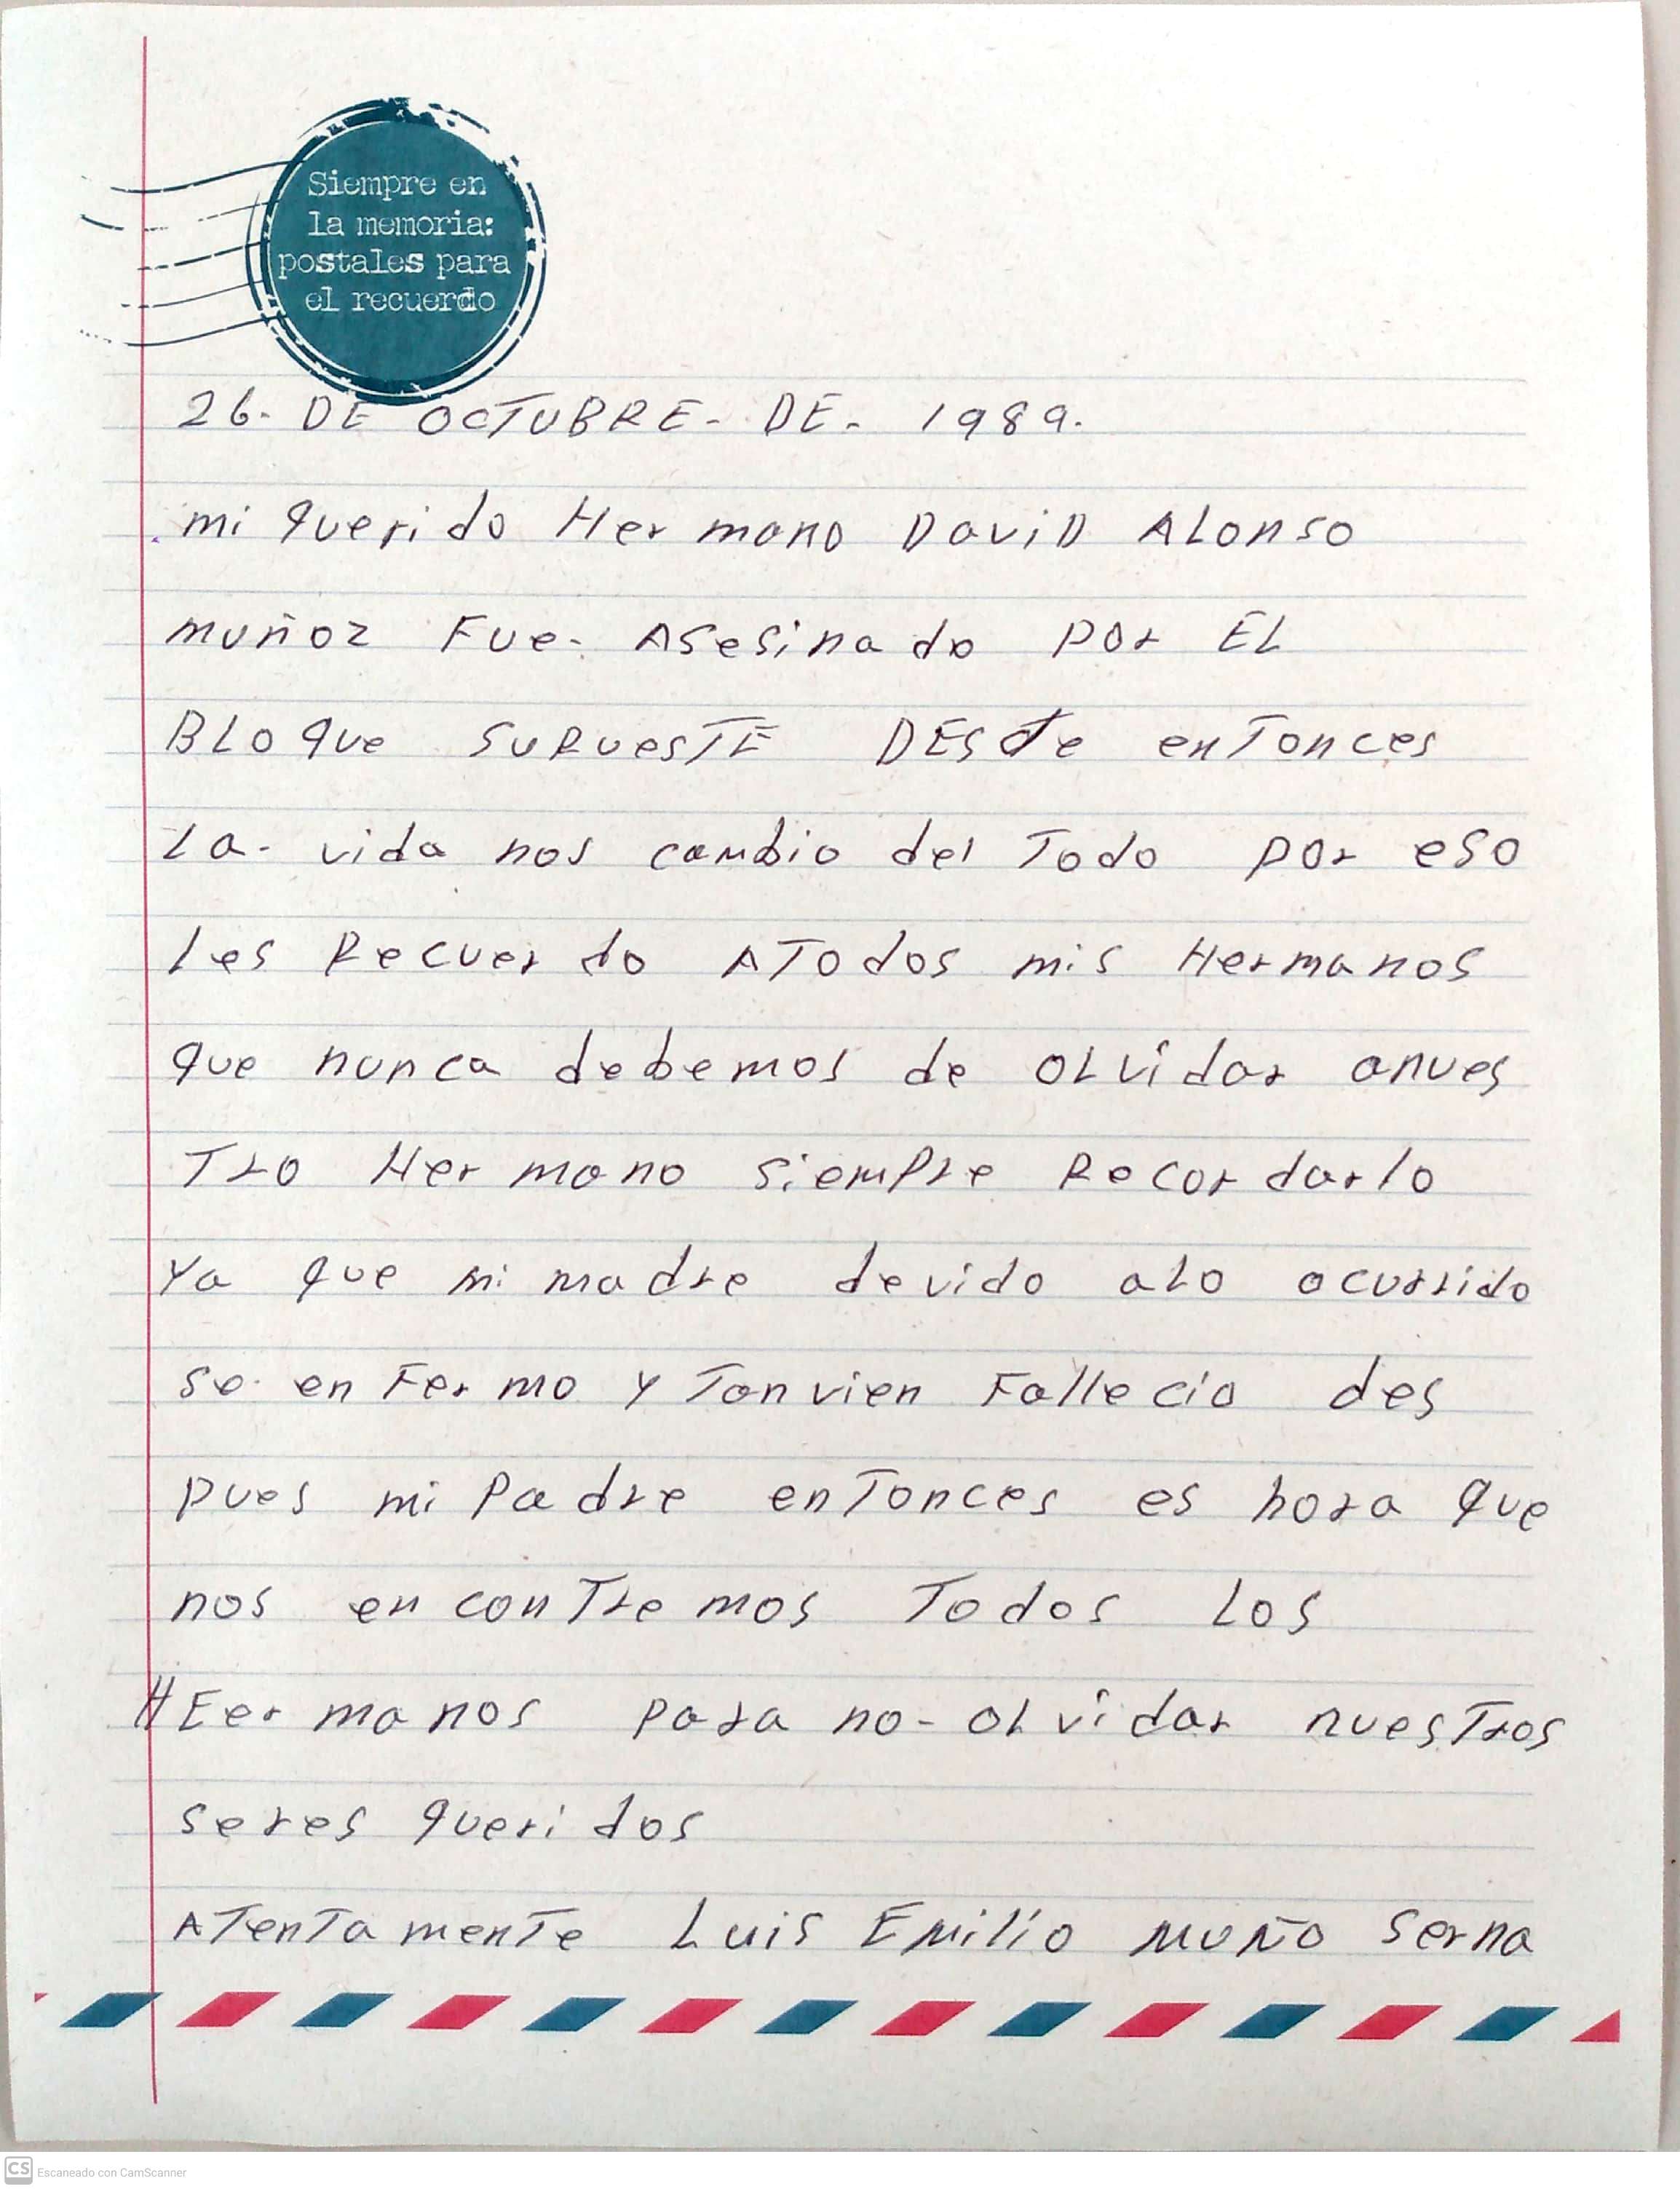 Siempre en
la memoria:
postales para
el recuerdo
26- DE OCTUBRE- DE- 1989.
mi querido Hermano DaviD ALonso
muñoz Fue- Asesinado por EL
BLoque SURuesTE DESde enTonces
La- vida nos cambio del Todo por eso
les Recuerdo ATodos mis Hermanos
que nunca debemos de oLvidar anues
Tro Hermano siempre Recordarlo
Ya que mi madre devido aLo ocurrido
se enFermo y Tanvien Fallecio des
pues mi Padre enTonces es hora que
nos enconTremos Todos Los
HEermanos para no- oLvidar nuesTros
seres queridos
ATenTamenTe Luis Emilio muño Serna
CS Escaneado con CamScanner